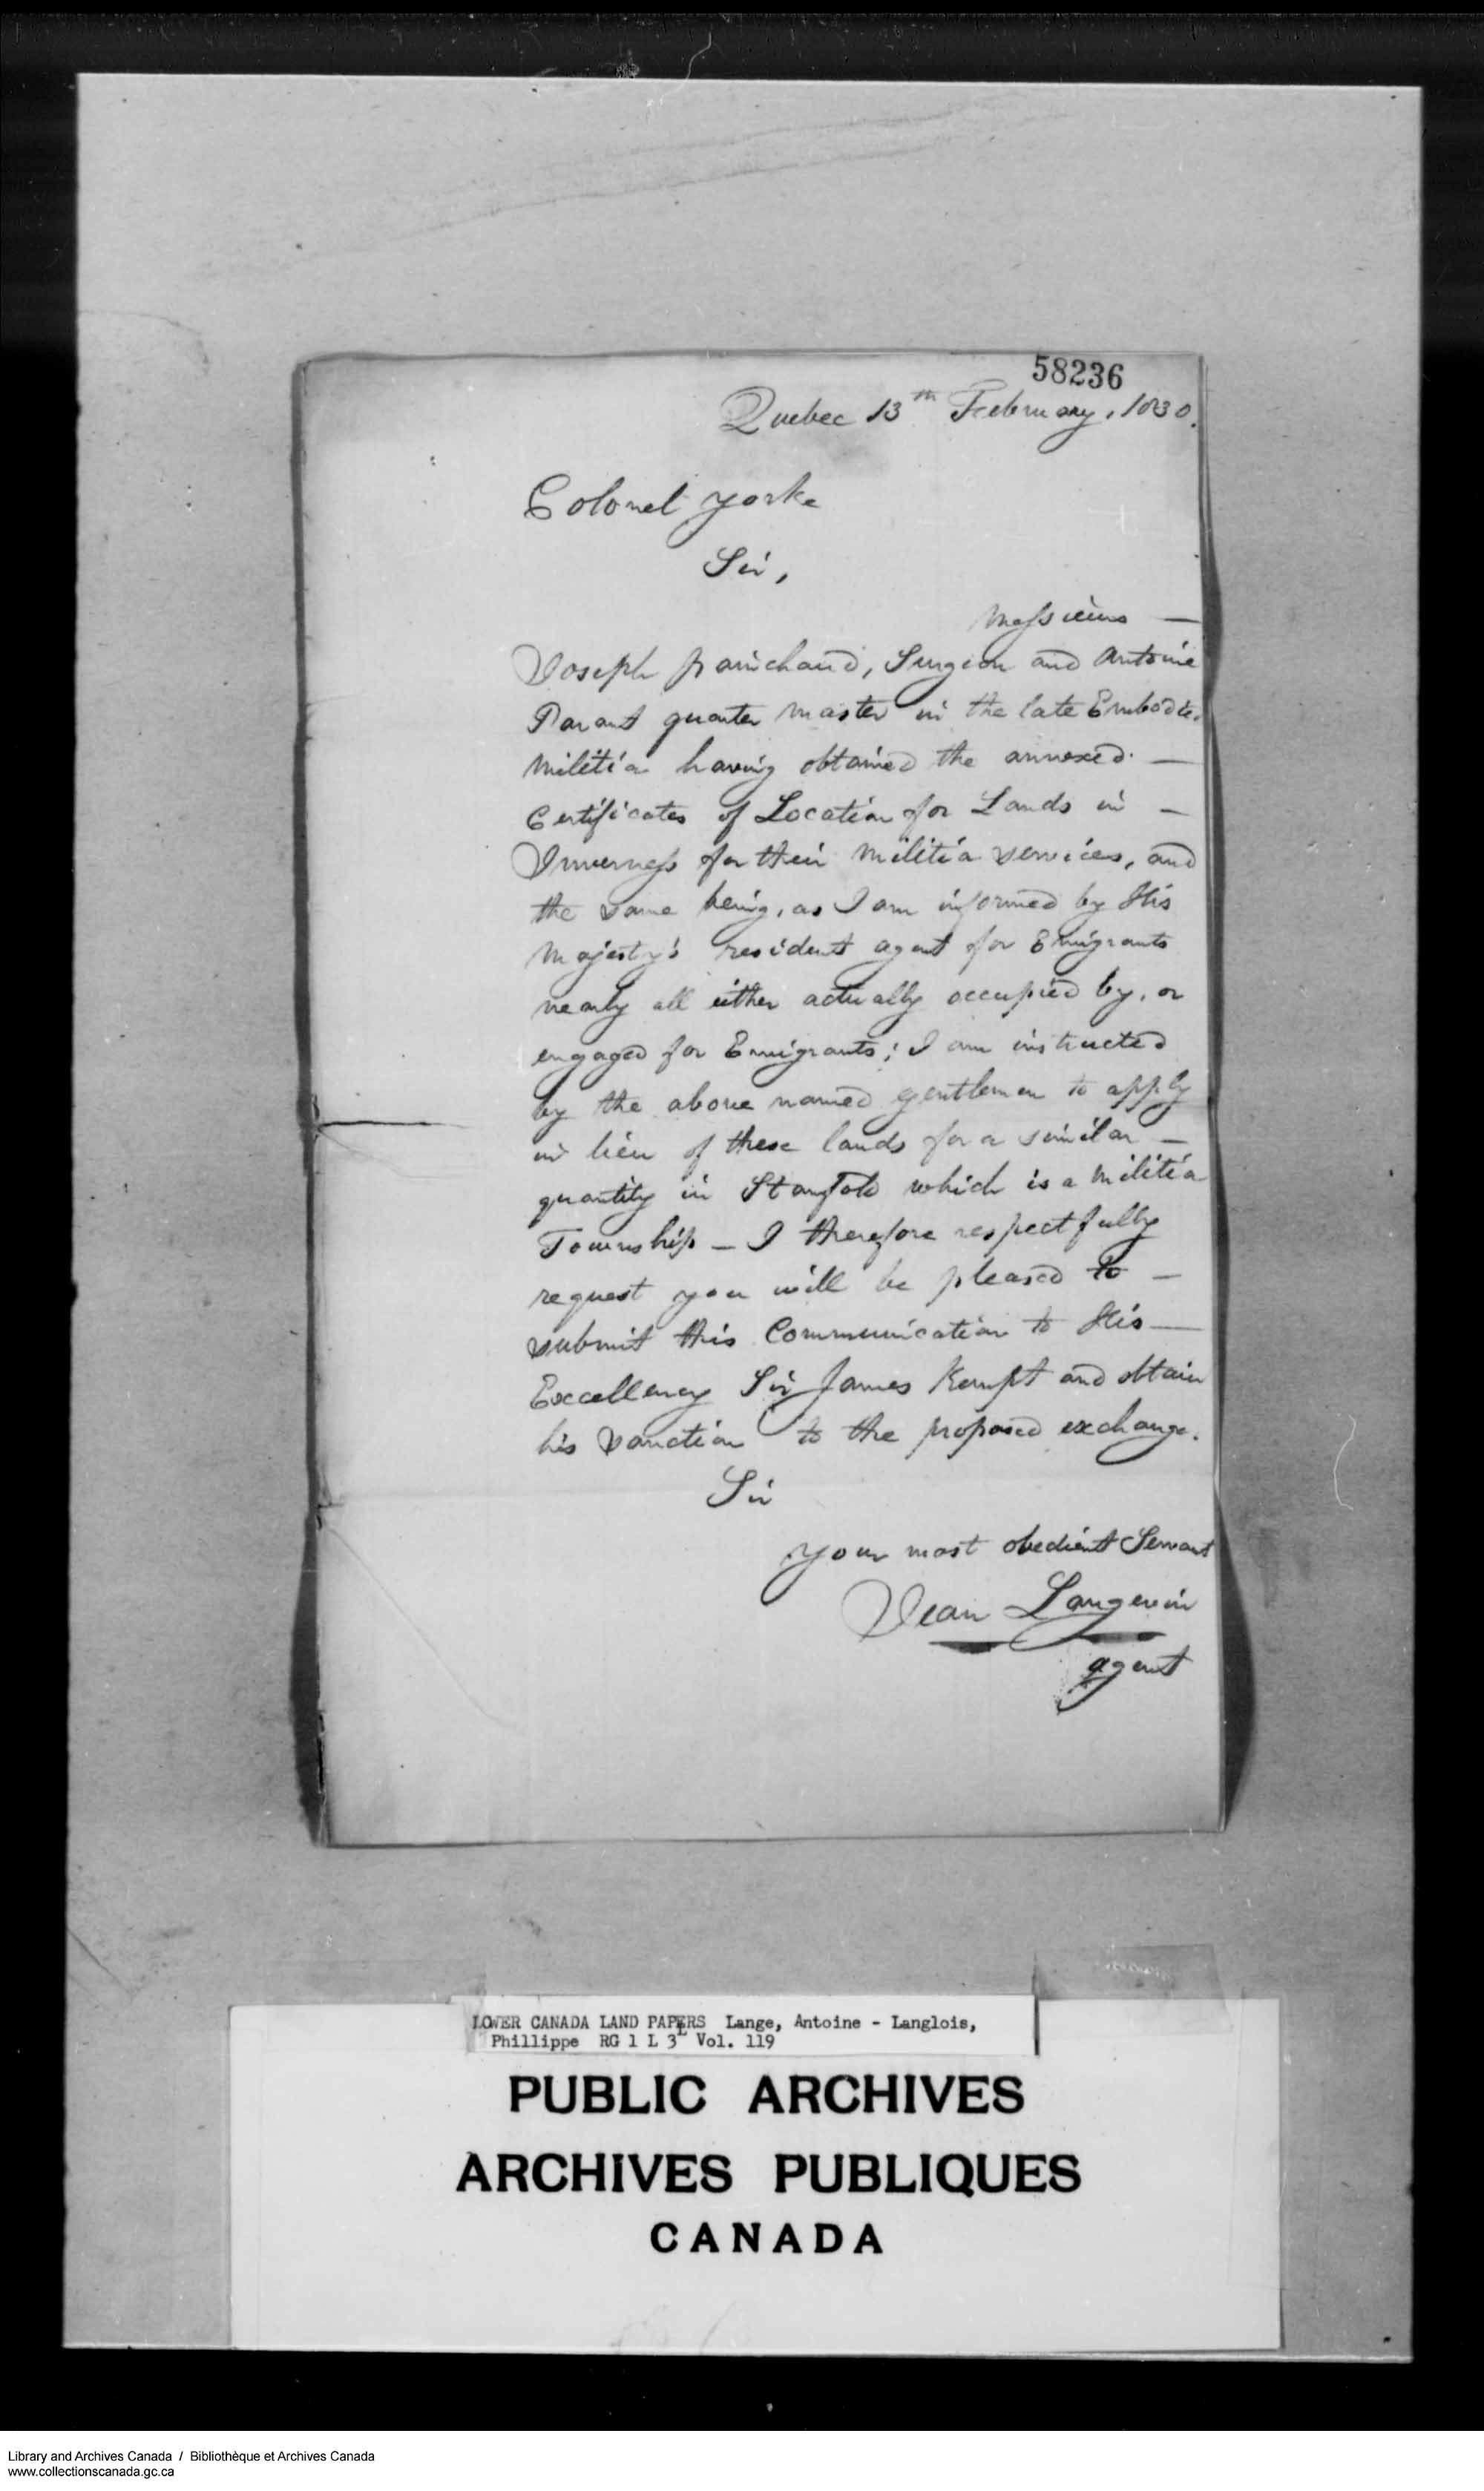 58236
Quebec 13th February, 1830.
Colonel Yorke
Sir,
Messieurs —
Joseph Painchaud, Surgeon and Antoine
Parant quarter master in the late Embodied
Militia having obtained the annexed —
Certificates of Location for Lands in —
Inverness for their Militia services, and
the same being, as I am informed by His
Majesty's resident agent for Emigrants
nearly all either actually occupied by, or
engaged for Emigrants; I am instructed
by the above named gentlemen to apply
in lieu of these lands for a similar —
quantity in Stanfold which is a Militia
Township — I therefore respectfully
request you will be pleased to —
submit this Communication to His —
Excellency Sir James Kempt and obtain
his sanction to the proposed exchange.
Sir
Your most obedient Servant
Jean Langevin
agent
LOWER CANADA LAND PAPERS Lange, Antoine - Langlois,
Phillippe RG 1 L 3L Vol. 119
PUBLIC ARCHIVES
ARCHIVES PUBLIQUES
CANADA
Library and Archives Canada / Bibliothèque et Archives Canada
www.collectionscanada.gc.ca